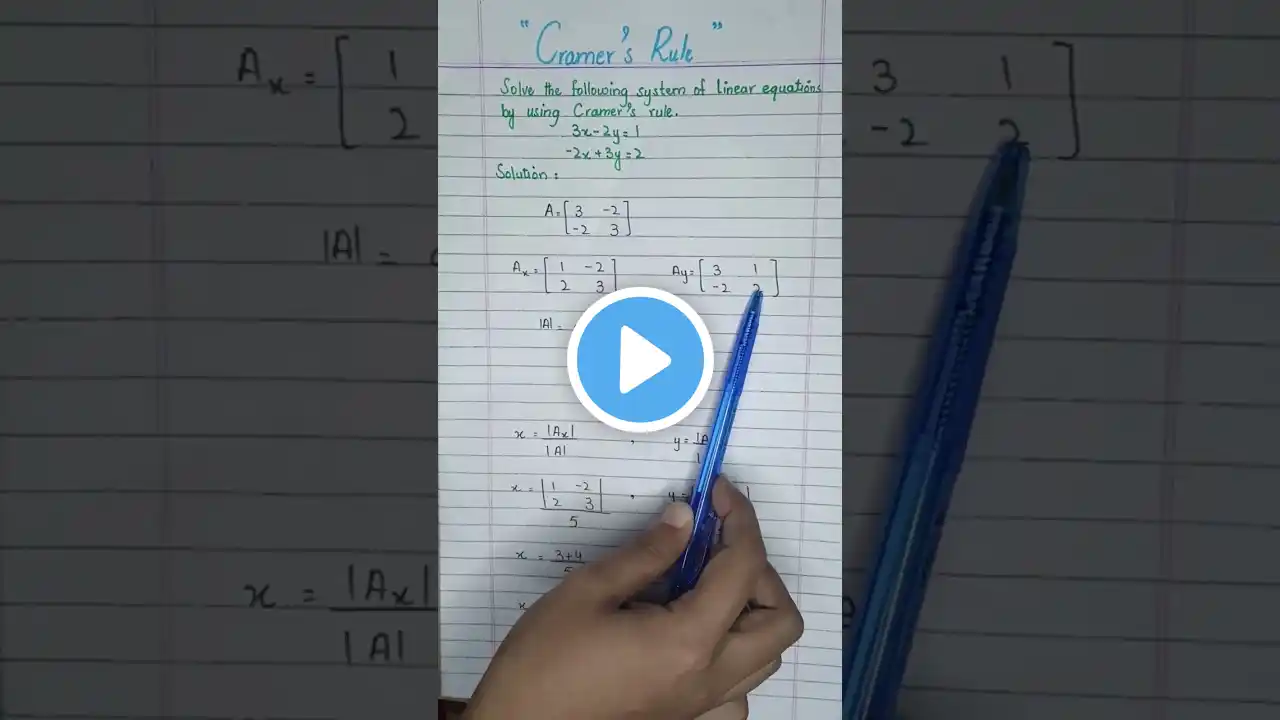 "Cramer's Rule"
Solve the following system of linear equations
by using Cramer's rule.
3x-2y=1
-2x+3y=2
Solution:
A=[3 -2
-2 3]
Ax=[1 -2
2 3]
Ay=[3 1
-2 2]
|A|=
x=|Ax|
|A|
,
y=|A
x=|1 -2
2 3|
5
,
y=
x=3+4
x
Ax=[1
2
3 1
-2 2]
|A|=
x=|Ax|
|A|